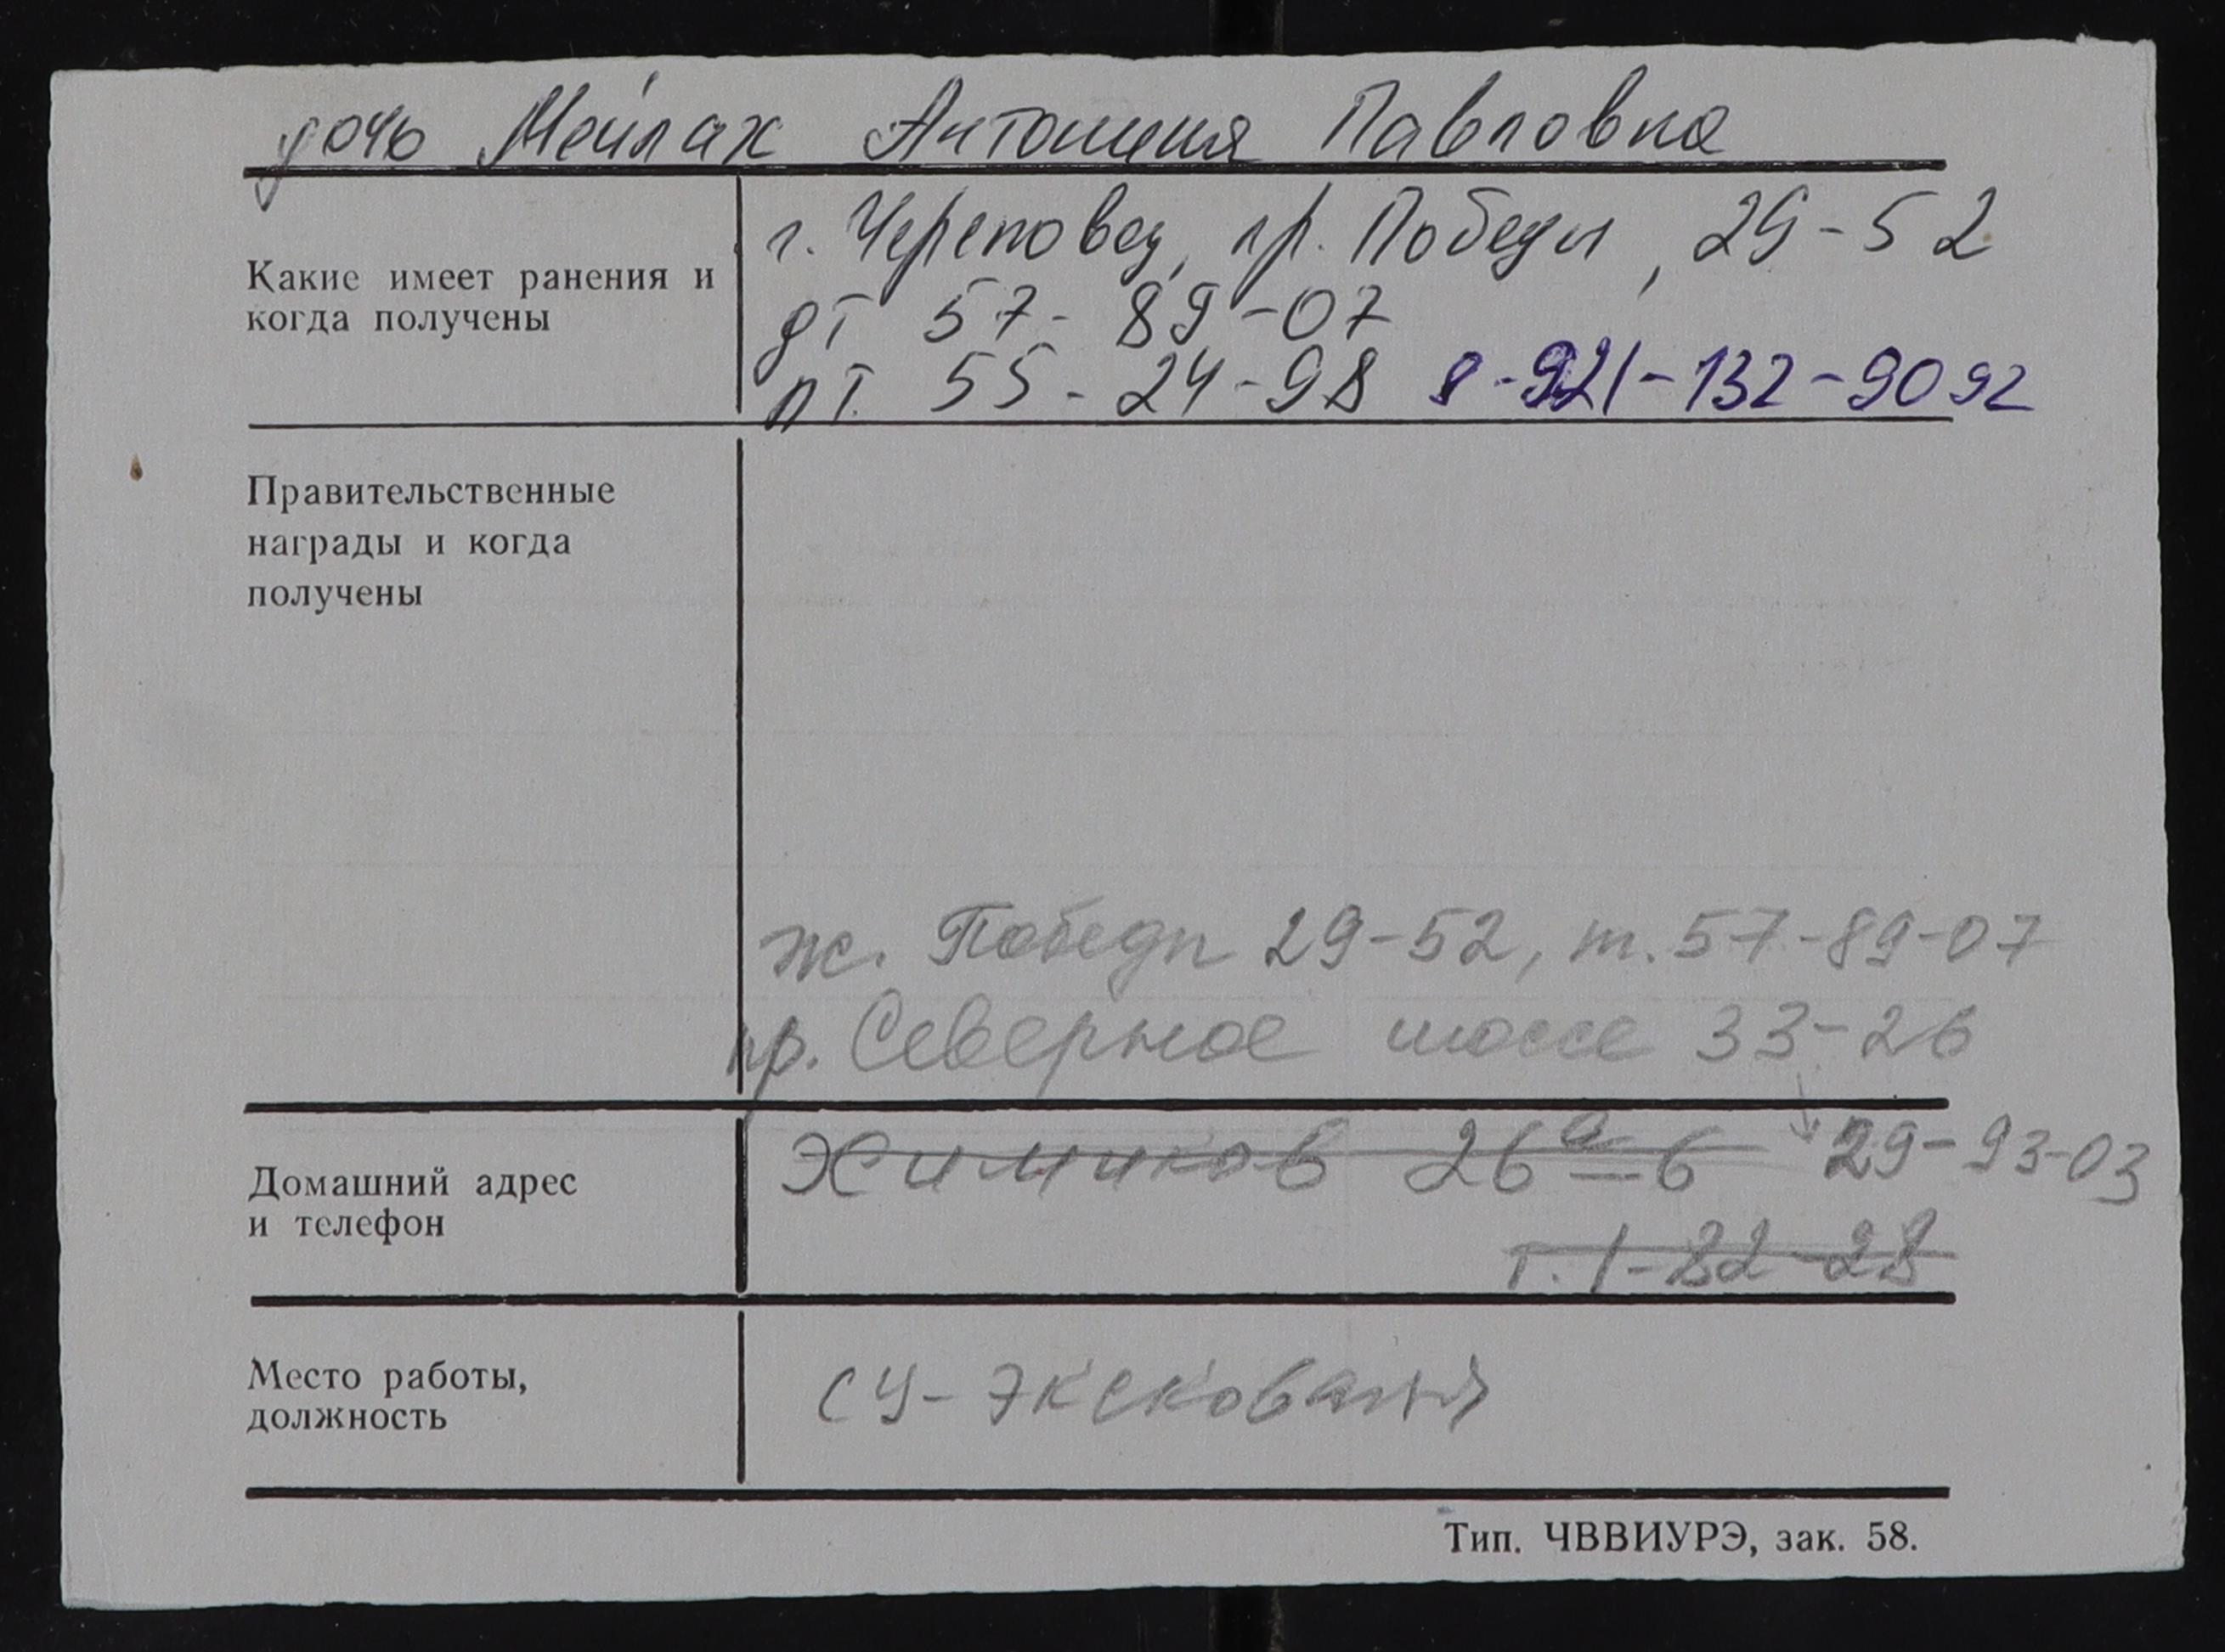 дочь Мейлах Антонина Павловна
Какие имеет ранения и
когда получены
г. Череповец, пр. Победы, 29-52
дт 57-89-07
рт. 55-24-98 8-921-132-90 92
Правительственные
награды и когда
получены
ж. Победы 29-52, т. 57-89-07
пр. Северное шоссе 33-26
Домашний адрес
и телефон
Химиков 26а-6 29-93-03
т. 1-82-28
Место работы,
должность
СУ-
Тип. ЧВВИУРЭ, зак. 58.